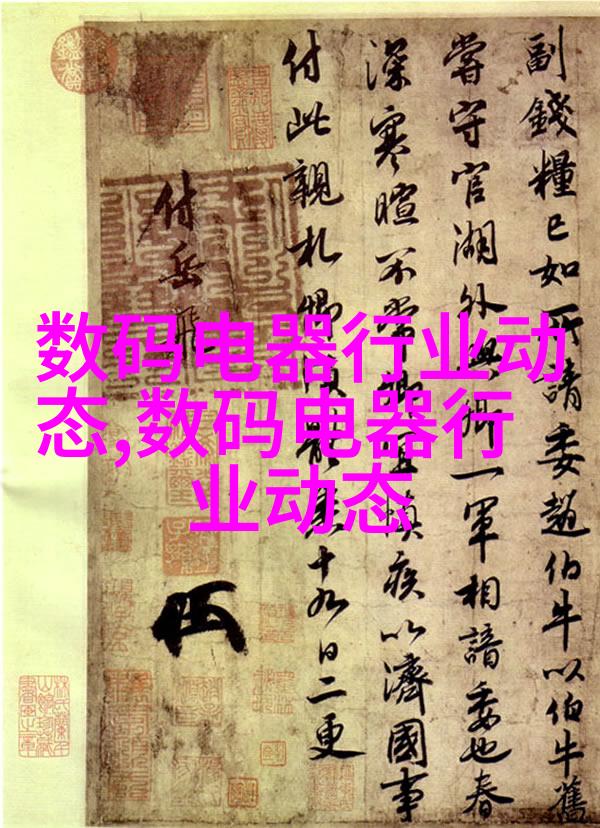 数码电器行业动
态,数码电器行
业动态
副錢糧已如所請委趙伯牛以伯牛舊
嘗守官湖外與卿一軍相諳委也春
深寒暄不常卿宜慎疾以濟國事
付此親札卿須體悉十九日二更
付岳飛